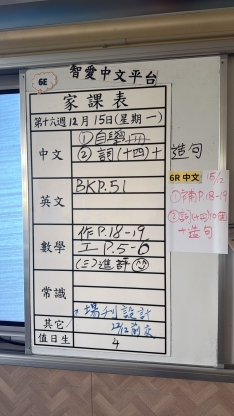 6E
智愛中文平台
家課表
第十六週12月15日(星期一)
中文
①自學冊
②詞(十四)+造句
英文
BK P.51
數學
作P.18-19
工P.5-6
(三)進評
常識
其它
場刊設計
值日生
4
6R 中文 15/12
①補P.18-19
②詞(十四)10個
+造句